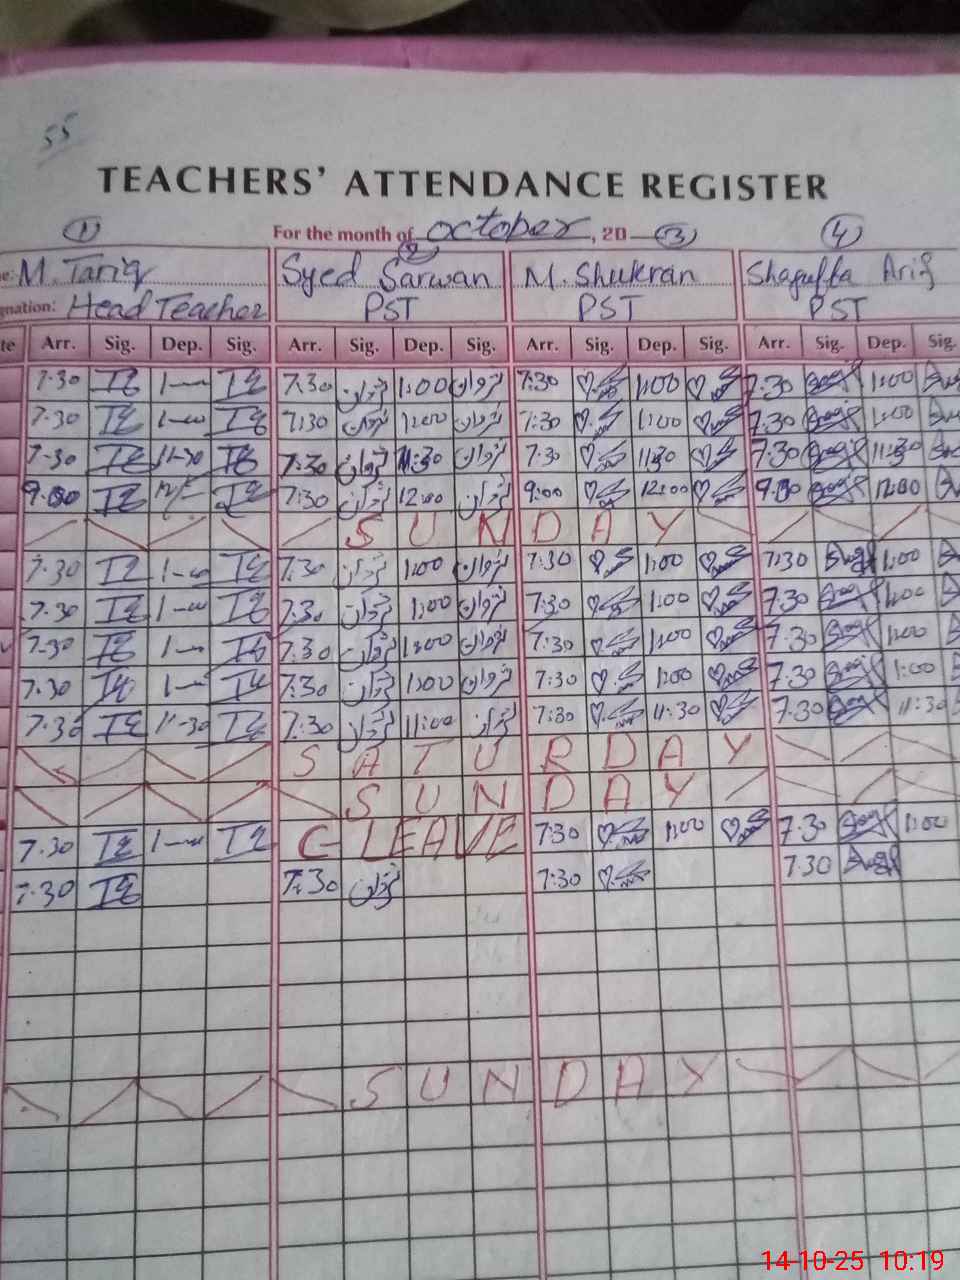 55
TEACHERS' ATTENDANCE REGISTER
For the month of October, 20
1 2 3 4
e: M. Tariq Syed Sarwan M. Shukran Shagufta Arif
gnation: Head Teacher PST PST PST
te Arr. Sig. Dep. Sig. Arr. Sig. Dep. Sig. Arr. Sig. Dep. Sig. Arr. Sig. Dep. Sig.
7.30 1- 7.30 1:00 7:30 1:00 7.30 1:00
7.30 1-00 7:30 1:00 7:30 1:00 7.30 1:00
7-30 11-30 7:30 11:30 7:30 11:30 7.30 11:30
9.00 12/- 7:30 12:00 9:00 12:00 9.00 12:00
SUNDAY
7.30 1-00 7:30 1:00 7:30 1:00 7:30 1:00
7.30 1-00 7:30 1:00 7:30 1:00 7.30 1:00
7.30 1- 7:30 1:00 7:30 1:00 7.30 1:00
7.30 1- 7:30 1:00 7:30 1:00 7.30 1:00
7.30 11-30 7:30 11:00 7:30 11:30 7.30 11:30
SATURDAY
SUNDAY
7.30 1- C-LEAVE 7:30 1:00 7.30 1:00
7:30 7:30 7:30 7:30
SUNDAY
14-10-25 10:19